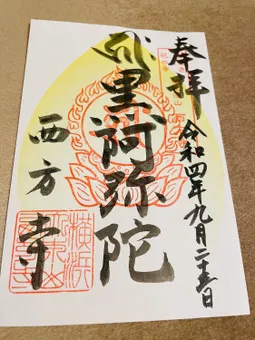 奉拝
令和四年九月二十五日
黒阿弥陀
西方寺
横浜